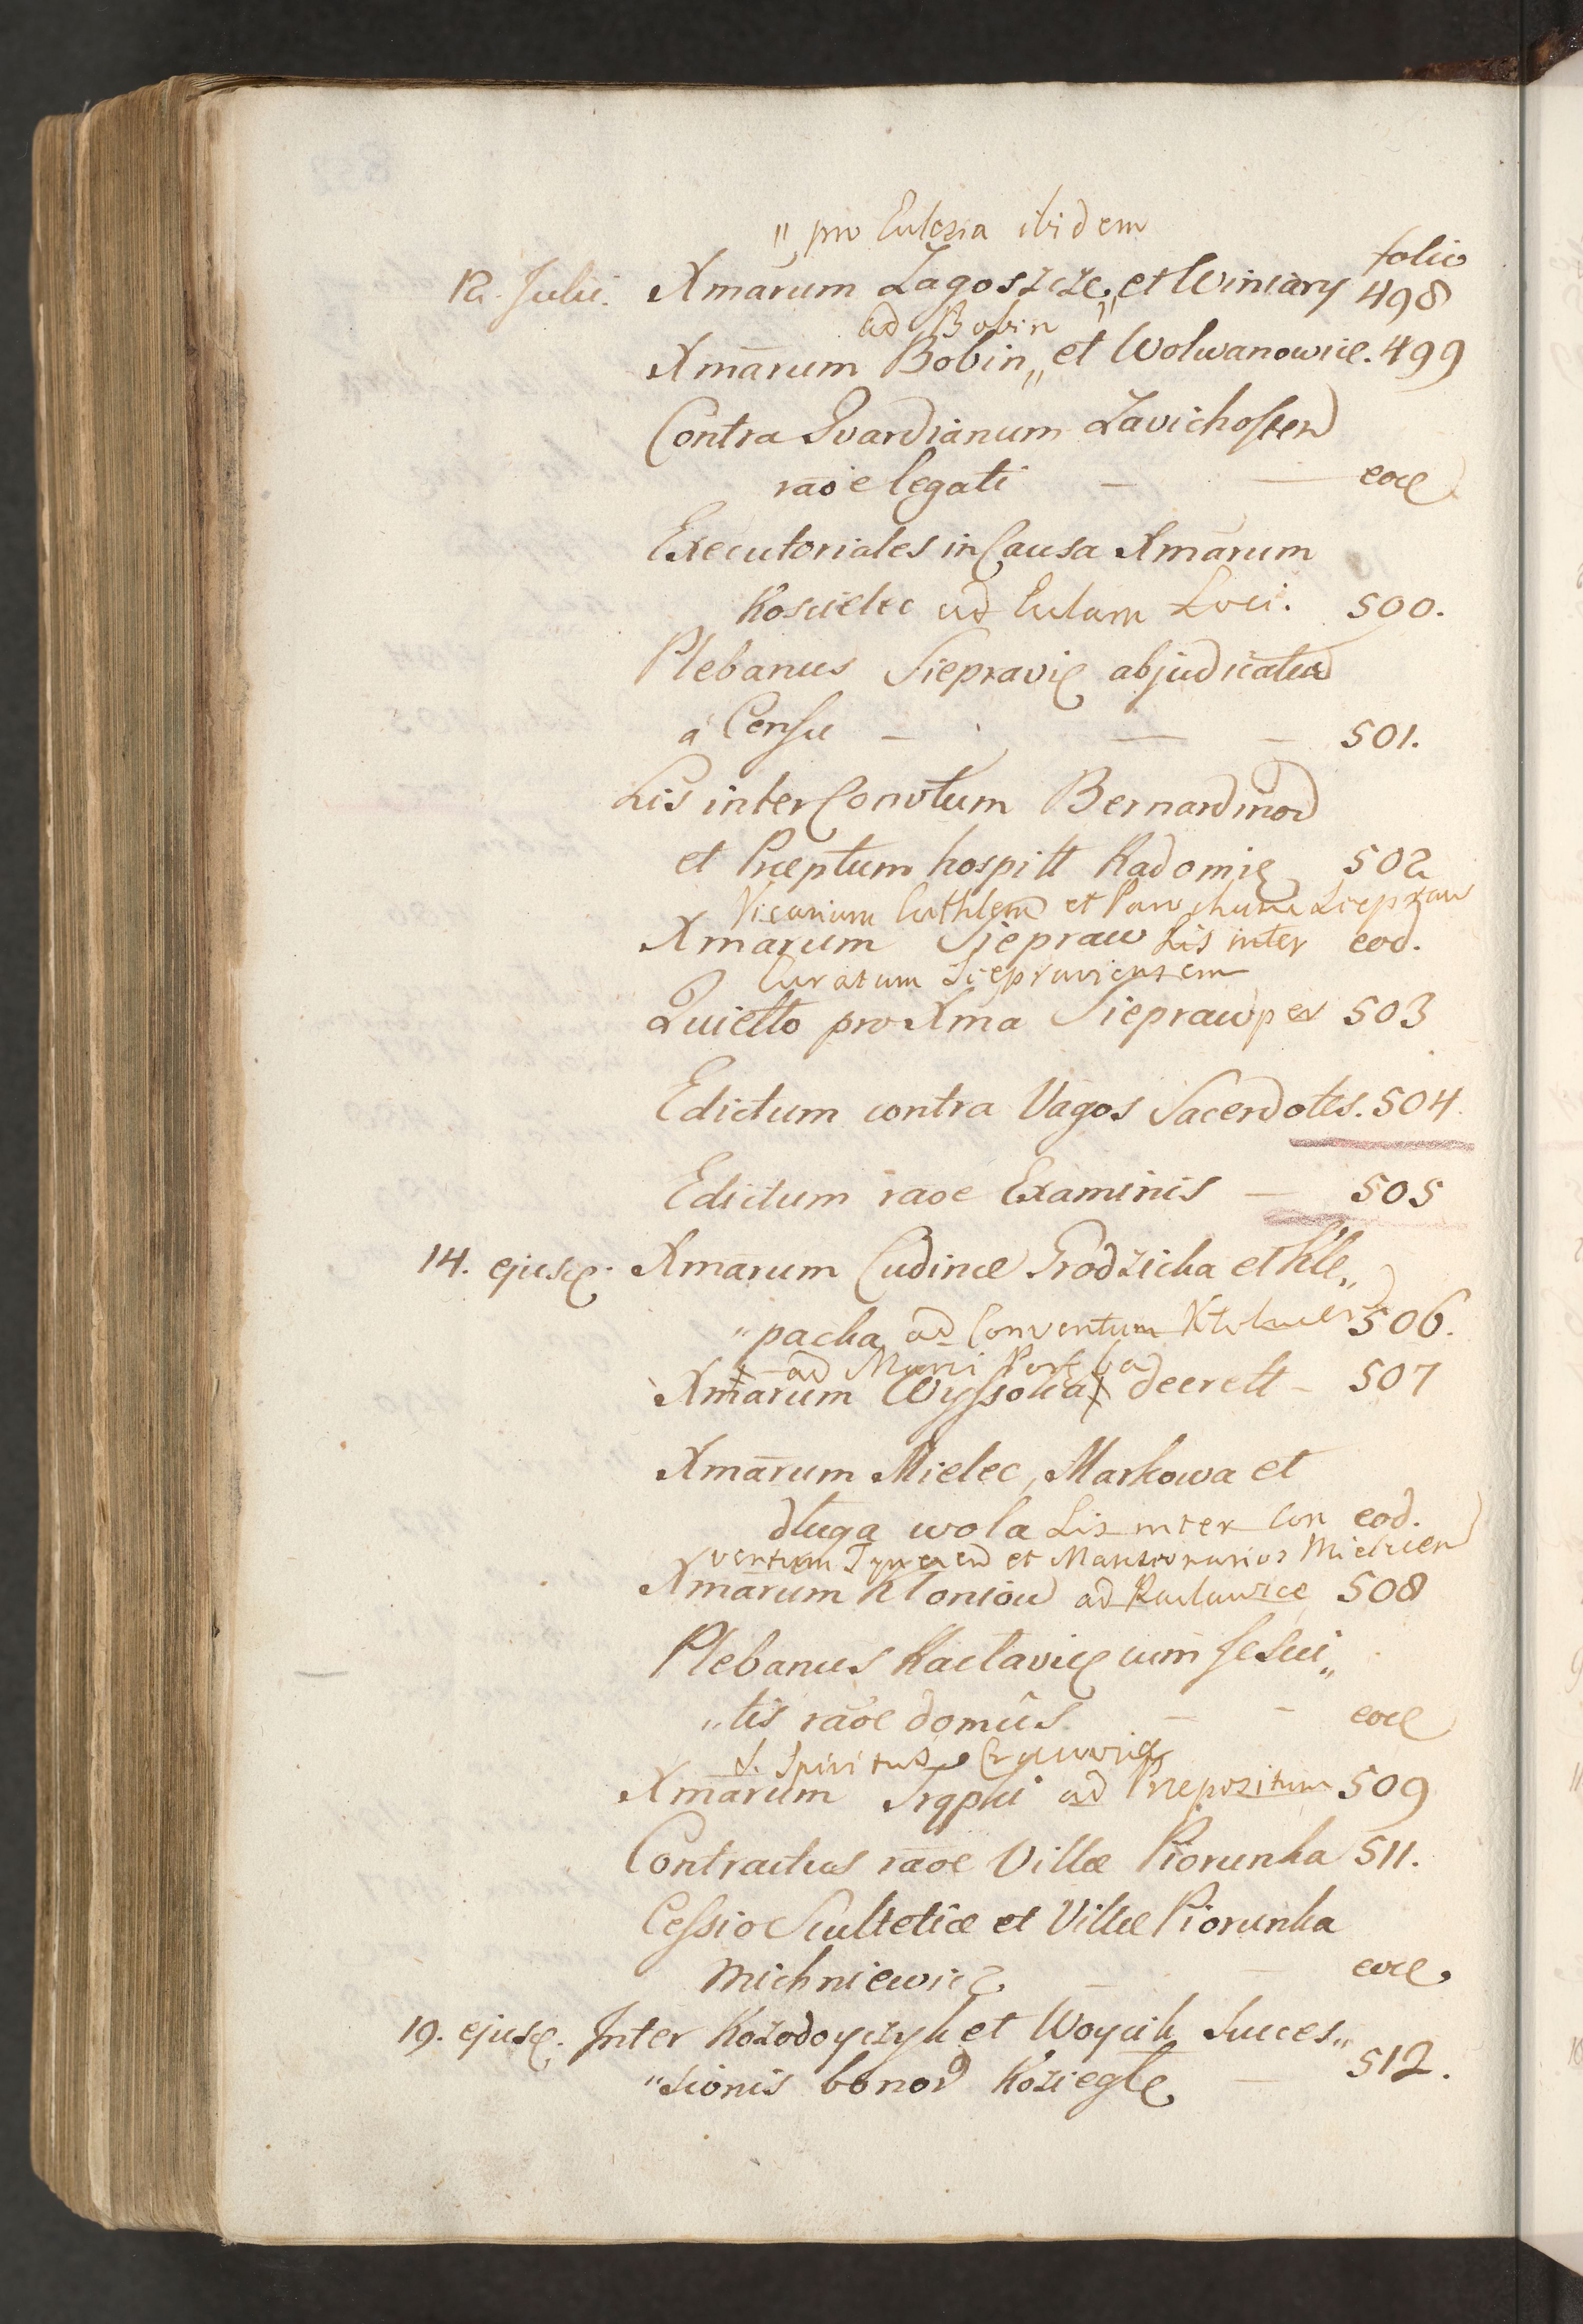 „ pro Eulesia ibidem
folio
12. Julii. Xmārum Zagoszcze „ et Winiary 498
ad Bobin
Xmārum Bobin „ et Wolwanowice. 499
Contra Gvardianum Zavichosten
raõe legati — — eod
Executoriales in Causa Xmārum
Koscielec ad Eulam Loci. 500.
Plebanus Siepravie abjudicatur
à Censu — — — 501.
Lis inter Convtum Bernardinor
et Præptum hospitt Radomie 502
Vicarium Cathlem et Parochum Siepraw
Xmārum Siepraw Lis inter eod.
Curatum Siepraviensem
Quietto pro Xma Siepraw per 503
Edictum contra Vagos Sacerdotes. 504.
Edictum raõe Examinis — 505
14. ejusd. Xmārum Cudinæ Grodzicka et Kle„
„packa ad Conventum 506.
ad Mariæ Poręba
Xmārum Wyssoka decrett — 507
Xmārum Mielec, Markowa et
długa wola Lis inter Con eod.
ventum Tynecen et Mansionarios Mielicen
Xmārum Kłoniow ad Raclawice 508
Plebanus Racłavice cum Jesui„
„tis raõe domûs — — eod
S. Spiritus Cracoviæ
Xmārum Trąpki ad Præpositum 509
Contractus raõe Villæ Piorunka 511.
Cessio Scultetiæ et Villæ Piorunka
Michniewicz — — eod.
19. ejusd. Inter Kozodoyczyk et Woycik Succes„
„sionis bonor Koziegłe — 512.